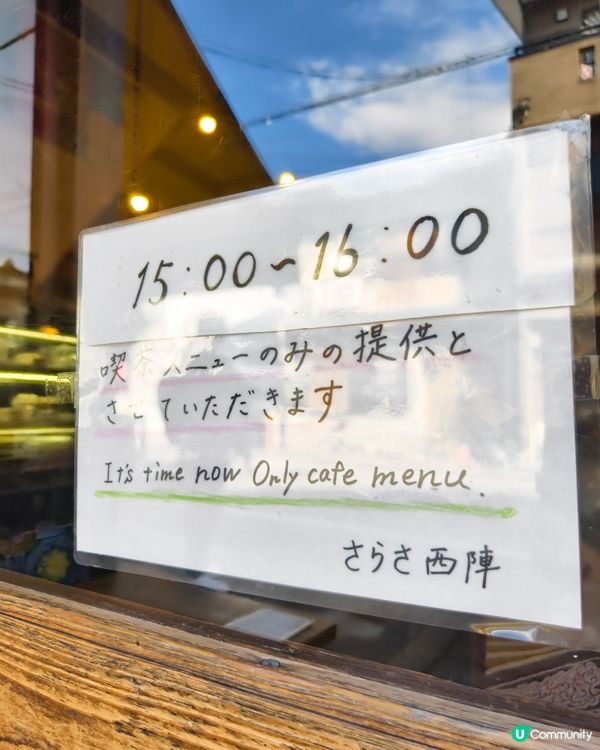 15:00~16:00
喫茶メニューのみの提供と
させていただきます
It's time now Only cafe menu.
さらさ西陣
U Community